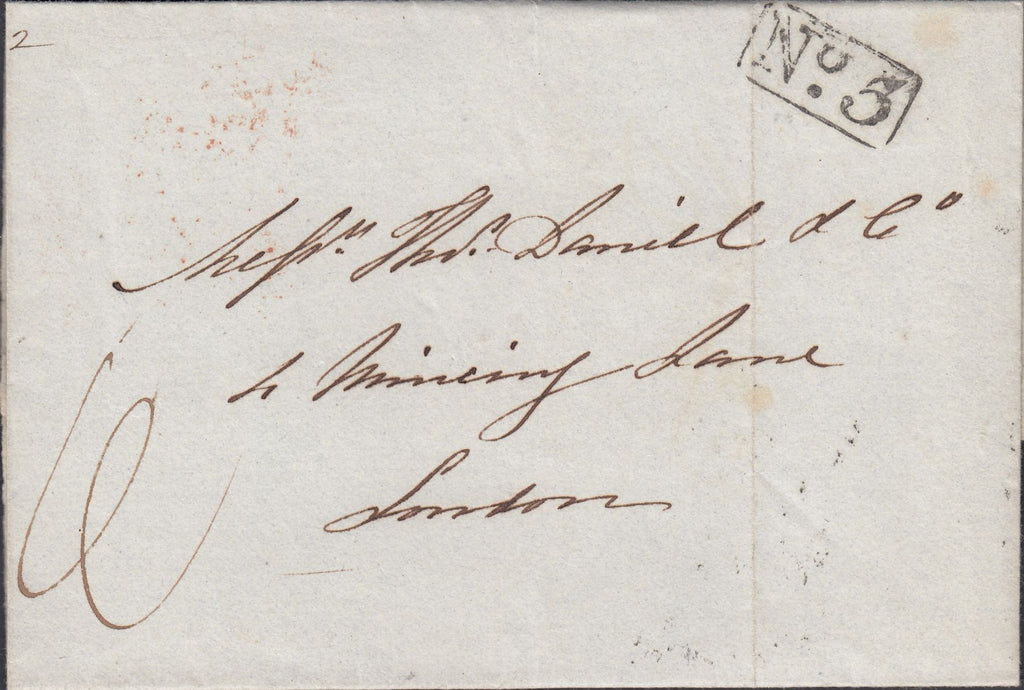 2
No. 3
Messrs. Thos. Daniel & Co
4 Mincing Lane
London